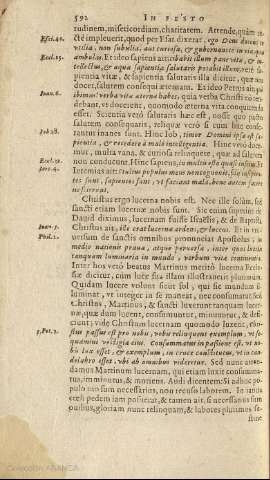 592 IN FESTO
tudinem, misericordiam, charitatem. Attende, quàm
ctè impleuerit, quod per Isai. dixerat, ego Deus docens te
vtilia, non subtilia, aut curiosa, & gubernans te in via qua
Isai. 48.
ambulas. Et ideo sapientia
Eccl. 15.
& aqua sapientiæ salutaris potabit illum, vere sa-
pientia vitæ, & sapientia salutaris illa dicitur, quæ non
docet, salutem consequi æternam. Et ideo Petrus ait, quò
Ioan. 6.
ibimus? verba vitæ æternæ habes, quia verba Christi
debant, vt docerent, quomodo æterna vita conquirenda
esset. Scientia verò salutaris hæc est, nosse quo pacto
salutem consequaris, reliquæ verò si cum hac
tantur inanes sunt. Hinc Iob, timor Domini ipsa est sa-
pientia, & recedere à malo intelligentia. Hinc verò doce-
Iob 28.
mur, multa vana, & curiosa relinquere, quæ ad salutem
non conducunt. Hinc Sapiens, in
Eccl.
Ieremias ait: stultus populus meus non cognouit,
Iere. 4.
tes sunt, sapientes sunt, vt faciant mala, bene autem facere
nescierunt.
Christus ergo lucerna nobis est. Nec ille solùm, sed
sancti etiam lucernæ nobis sunt. Sic enim supernè in
Dauid diximus, lucernam fuisse Israelis, & de Baptista
Christus ait, ille erat lucerna ardens, & lucens. Et in
Ioan. 5.
uersum de sanctis omnibus pronunciat Apostolus: in
Phil. 2.
medio nationis prauæ, atque peruersæ, inter quos lucetis
tanquam luminaria in mundo, verbum vitæ continentes.
Inter hos verò beatus Martinus meritò lucerna Eccle-
siæ dicitur, cum luce sua illam illustrantem plurimùm.
Quidam lucere volunt sicut sol, qui sic mundum il-
luminat, vt integer in se maneat, neque consummatur: sed
Christus, Martinus, & sancti luxerunt tanquam lucer-
næ, quæ dum lucent, consumuntur, minuuntur, & defi-
ciunt; vide Christum lucernam quomodo lucenti, Chri-
stus passus est pro nobis, vobis relinquens exemplum, vt se-
1. Pet. 2.
quamini vestigia eius. Consummatus in passione est, vt no-
bis lux esset, & exemplum, in cruce constitutus, vt in can-
delabro esset, vbi ab omnibus videretur. Sed nunc atten-
damus Martinum lucernam, qui etiam luxit consumma-
tus, imminutus, & moriens. Audi dicentem: Si adhuc po-
pulo tuo sum necessarius, non recuso laborem. In ianua
cœli pedem iam posuerat, & tamen ait, si necessarius sum
ouibus, gloriam nunc relinquam, & labores plurimos se-
stine